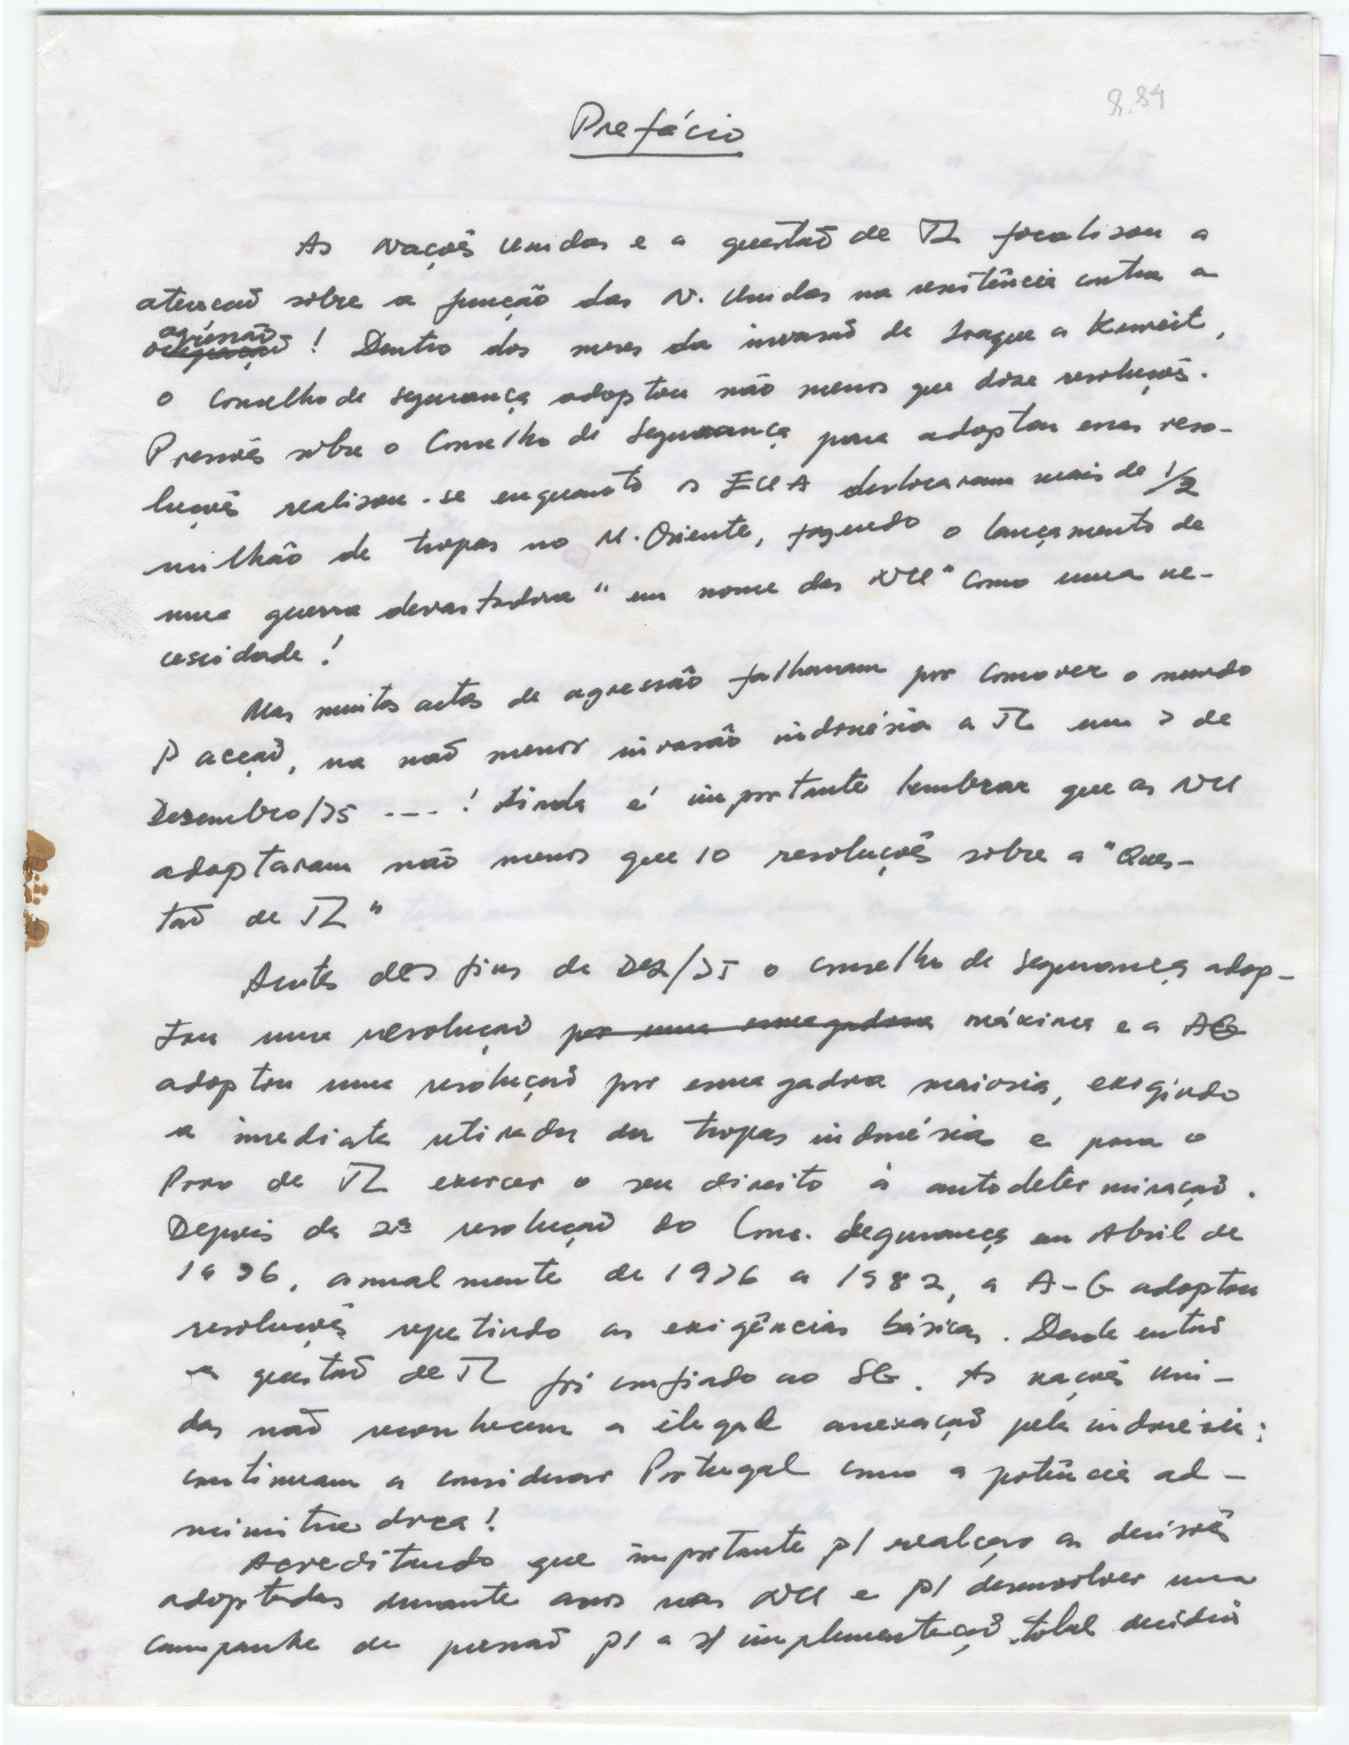 8.84
Prefácio
As Nações Unidas e a questão de TL focalisou a
atenção sobre a função das N. Unidas na resistência contra a
agressão ocupação! Dentro dos meses da invasão de Iraque a Kuweit,
o Conselho de Segurança adoptou não menos que doze resoluções.
Pressões sobre o Conselho de Segurança para adoptar essas reso-
luções realisou-se enquanto os EUA deslocaram mais de 1/2
milhão de tropas no M. Oriente, fazendo o lançamento de
uma guerra devastadora "em nome das NU" como uma ne-
cessidade!
Mas muitos actos de agressão falharam por comover o mundo
p acção, na não menor invasão indonésia a TL em 7 de
Dezembro/75 ----! Ainda é importante lembrar que as NU
adoptaram não menos que 10 resoluções sobre a "Ques-
tão de TL"
Antes dos fins de Dez/75 o conselho de Segurança adop-
tou uma resolução por uma esmagadora máxima e a AG
adoptou uma resolução por esmagadora maioria, exigindo
a imediata retirada das tropas indonésias e para o
Povo de TL exercer o seu direito à autodeterminação.
Depois da 2ª resolução do Cons. Segurança em Abril de
1976, anualmente de 1976 a 1982, a A-G adoptou
resoluções repetindo as exigências básicas. Desde então
a questão de TL foi confiado ao SG. As nações Uni-
das não reconhecem a ilegal anexação pela indonésia;
continuam a considerar Portugal como a potência ad-
ministradora!
Acreditando que importante p/ realçar as decisões
adoptadas durante anos nas NU e p/ desenvolver uma
campanha de pressão p/ a s/ implementação total decidiu